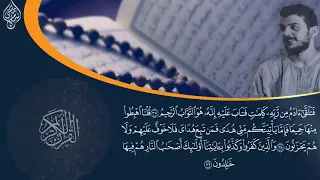 فَتَلَقَّىٰٓ ءَادَمُ مِن رَّبِّهِۦ كَلِمَٰتٍ فَتَابَ عَلَيْهِ إِنَّهُۥ هُوَ ٱلتَّوَّابُ ٱلرَّحِيمُ ٣٧ قُلْنَا ٱهْبِطُوا۟
مِنْهَا جَمِيعًا فَإِمَّا يَأْتِيَنَّكُم مِّنِّى هُدًى فَمَن تَبِعَ هُدَاىَ فَلَا خَوْفٌ عَلَيْهِمْ وَلَا
هُمْ يَحْزَنُونَ ٣٨ وَٱلَّذِينَ كَفَرُوا۟ وَكَذَّبُوا۟ بِـَٔايَٰتِنَآ أُو۟لَٰٓئِكَ أَصْحَٰبُ ٱلنَّارِ هُمْ فِيهَا
خَٰلِدُونَ ٣٩
القرآن الكريم